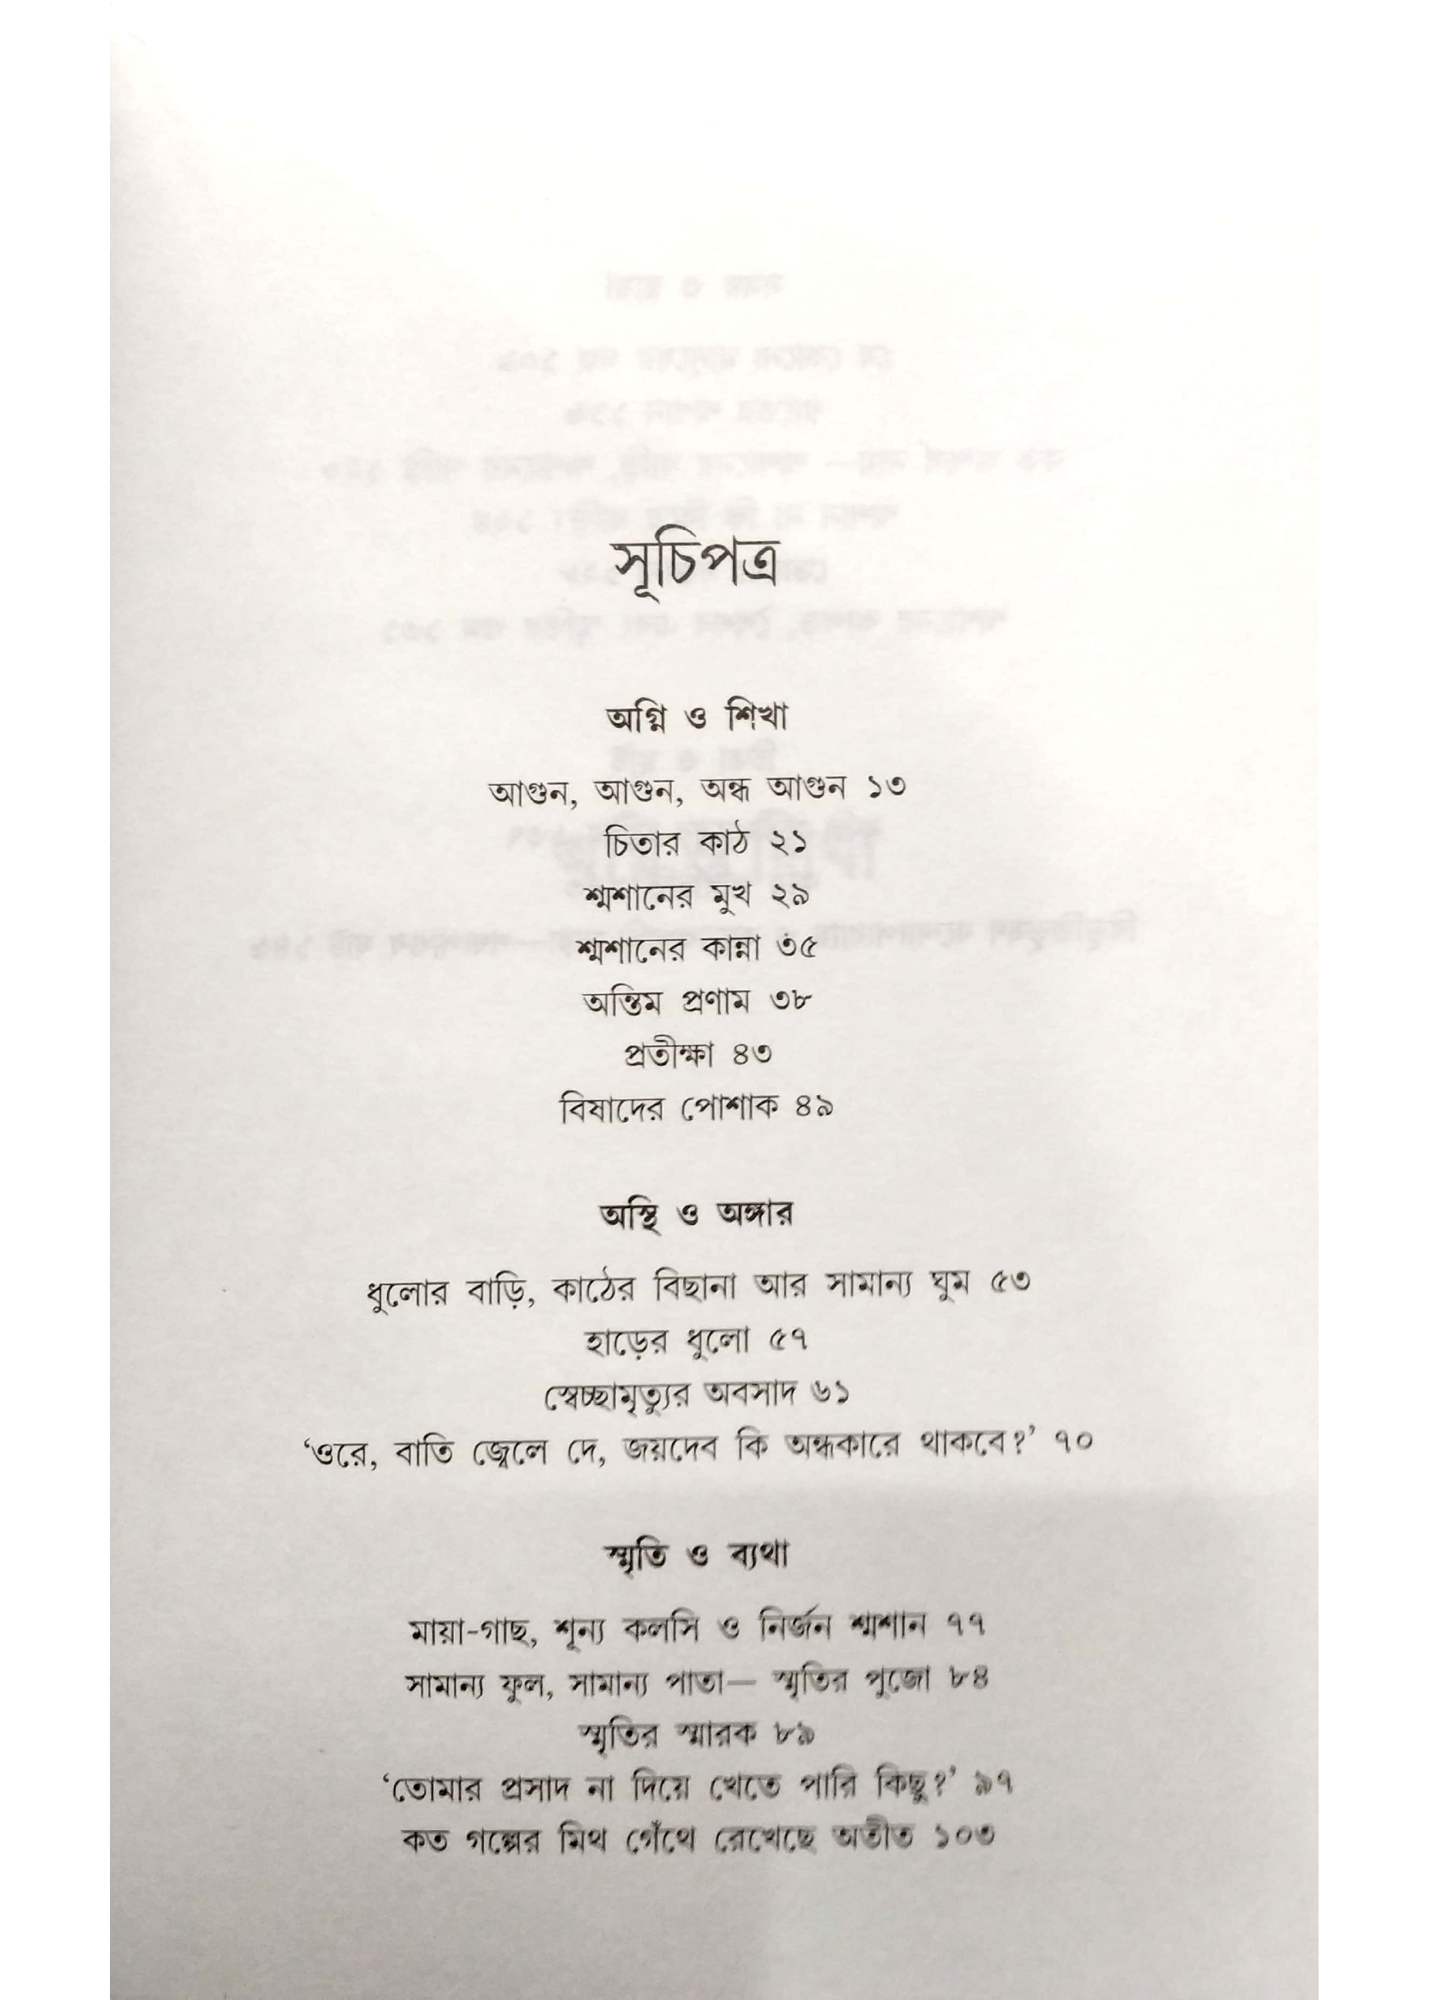 সূচিপত্র
অগ্নি ও শিখা
আগুন, আগুন, অন্ধ আগুন ১৩
চিতার কাঠ ২১
শ্মশানের মুখ ২৯
শ্মশানের কান্না ৩৫
অন্তিম প্রণাম ৩৮
প্রতীক্ষা ৪৩
বিষাদের পোশাক ৪৯
অস্থি ও অঙ্গার
ধুলোর বাড়ি, কাঠের বিছানা আর সামান্য ঘুম ৫৩
হাড়ের ধুলো ৫৭
স্বেচ্ছামৃত্যুর অবসাদ ৬১
‘ওরে, বাতি জ্বেলে দে, জয়দেব কি অন্ধকারে থাকবে?’ ৭০
স্মৃতি ও ব্যথা
মায়া-গাছ, শূন্য কলসি ও নির্জন শ্মশান ৭৭
সামান্য ফুল, সামান্য পাতা— স্মৃতির পুজো ৮৪
স্মৃতির স্মারক ৮৯
‘তোমার প্রসাদ না দিয়ে খেতে পারি কিছু?’ ৯৭
কত গল্পের মিথ গেঁথে রেখেছে অতীত ১০৩